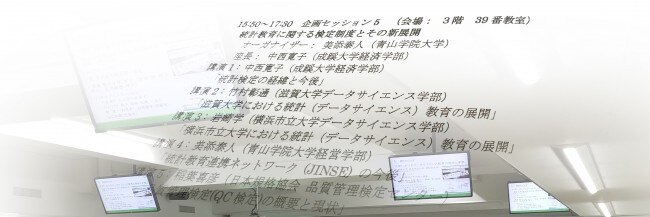 15:50～17:30　企画セッション５　（会場：　３階　39番教室）
統計教育に関する検定制度とその新展開
オーガナイザー：　美添泰人（青山学院大学）
座長：　中西寛子（成蹊大学経済学部）
講演１：中西寛子（成蹊大学経済学部）
「統計検定の経緯と今後」
講演２：竹村彰通（滋賀大学データサイエンス学部）
「滋賀大学における統計（データサイエンス）教育の展開」
講演３：岩崎学（横浜市立大学データサイエンス学部）
「横浜市立大学における統計（データサイエンス）教育の展開」
講演４：美添泰人（青山学院大学経営学部）
「統計教育連携ネットワーク（JINSE）の今後」
講演５：（日本規格協会 品質管理検定
検定(QC検定)の概要と現状」